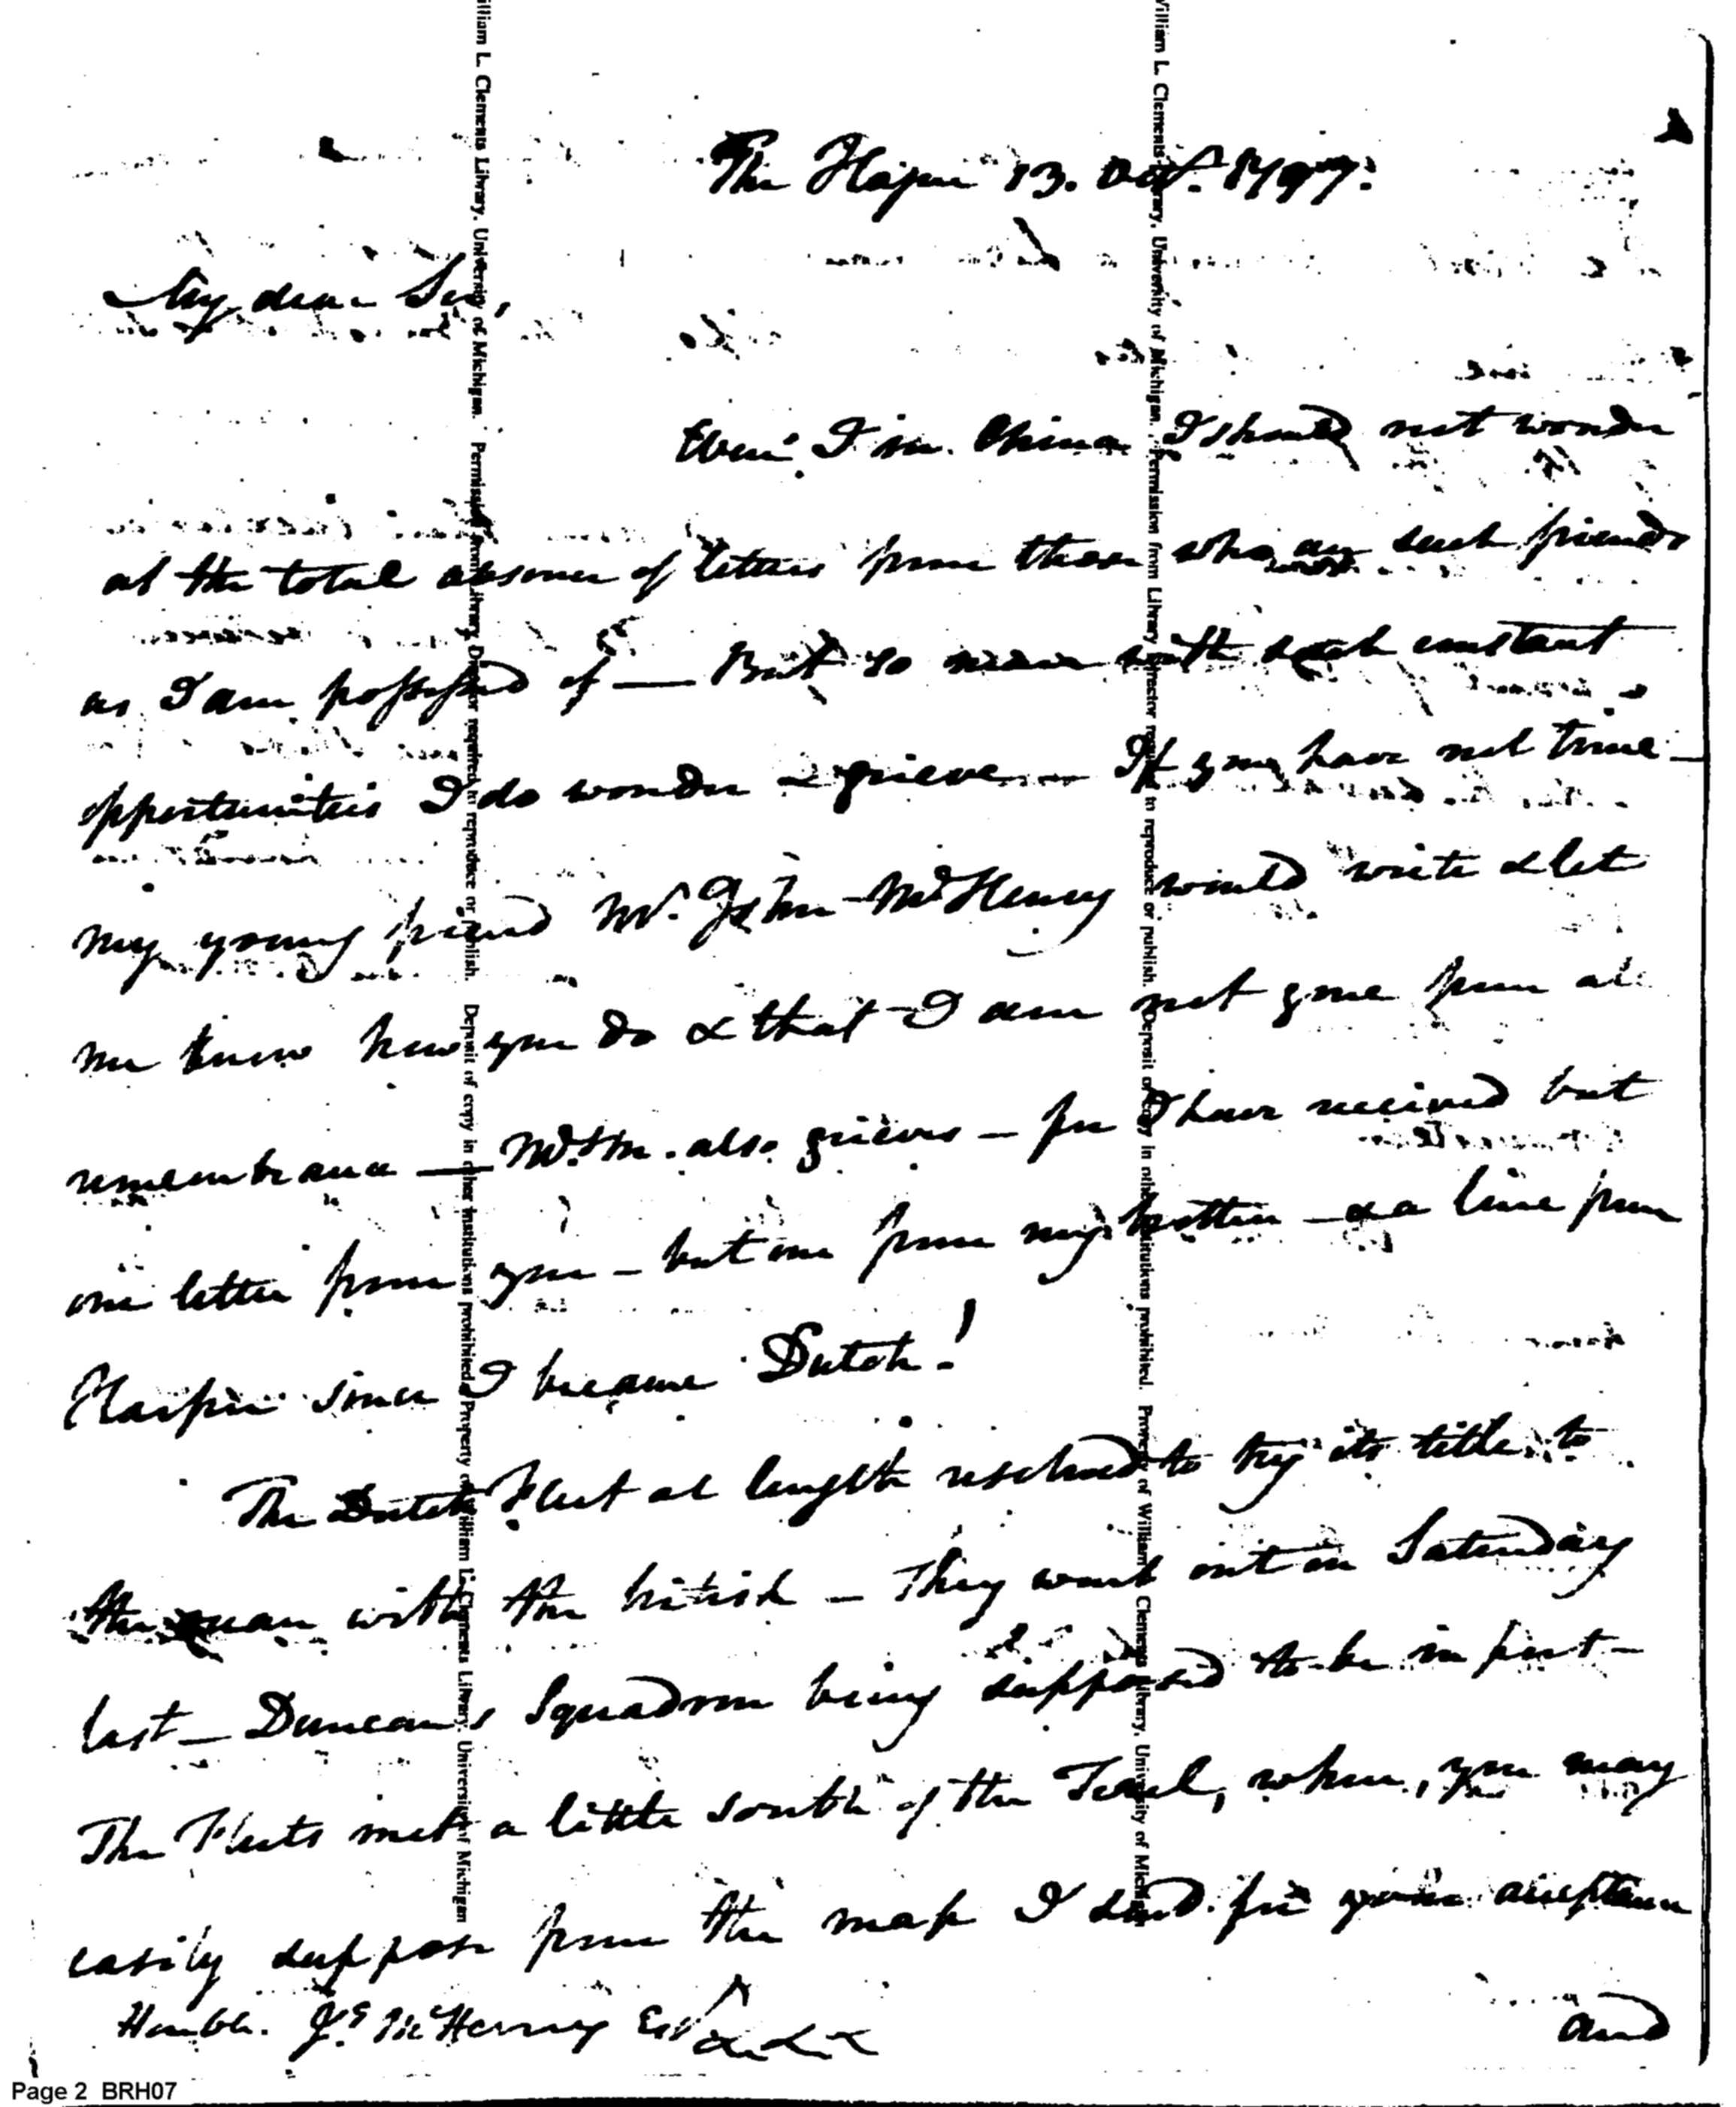 The Hague 13. Oct. 1797.
My dear Sir,
Were I in China I should not wonder
at the total absence of letters from those who are such friends
as I am possessed of — But so near with such constant
opportunities I do wonder & grieve — If you have not time —
my young friend Mr. John McHenry would write & let
me know how you do & that I am not gone from all
remembrance — Mrs. M. also grieves — for I have received but
one letter from you — but one from my brother — & a line from
Harper since I became Dutch!
The Dutch Fleet at length resolved to try its title to
the ocean with the british — They went out on Saturday
last — Duncan's Squadron being supposed to be in port —
The Fleets met a little south of the Texel, where, you may
easily suppose from the map I send for your acceptance
Honble. Js. McHenry Esqr &c &c
and
William L. Clements Library, University of Michigan. Permission from Library Director required to reproduce or publish. Deposit of copy in other institutions prohibited. Property of William L. Clements Library, University of Michigan
William L. Clements Library, University of Michigan. Permission from Library Director required to reproduce or publish. Deposit of copy in other institutions prohibited. Property of William L. Clements Library, University of Michigan
Page 2 BRH07